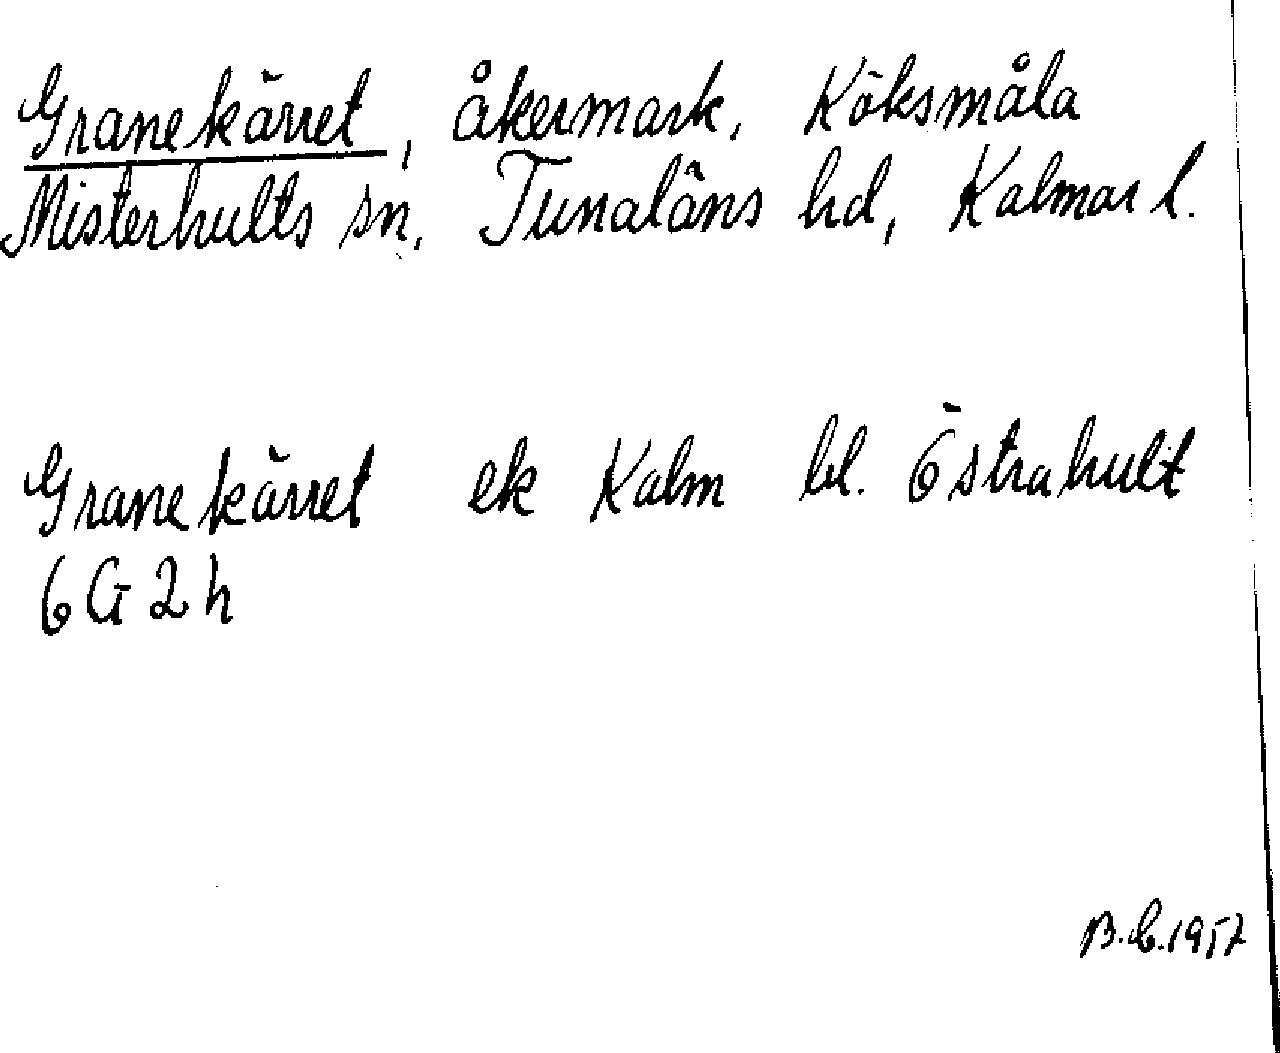 Granekärret, åkermark, Köksmåla
Misterhults sn, Tunaläns hd, Kalmar l.
Granekärret ek Kalm bl. Östrahult
6G2h
B.C.1957